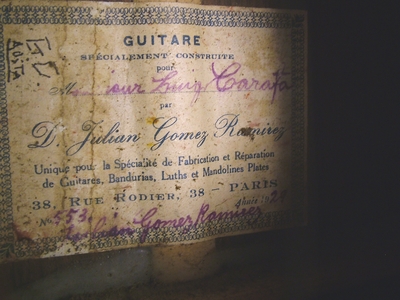 GUITARE
SPÉCIALEMENT CONSTRUITE
pour
M sieur Luiz
par
D. Julian Gomez Ramirez
Unique pour la Spécialité de Fabrication et Réparation
de Guitares, Bandurias, Luths et Mandolines Plates
38, RUE RODIER, 38 — PARIS
No. 553 Année: 19
Julian Gomez Ramirez